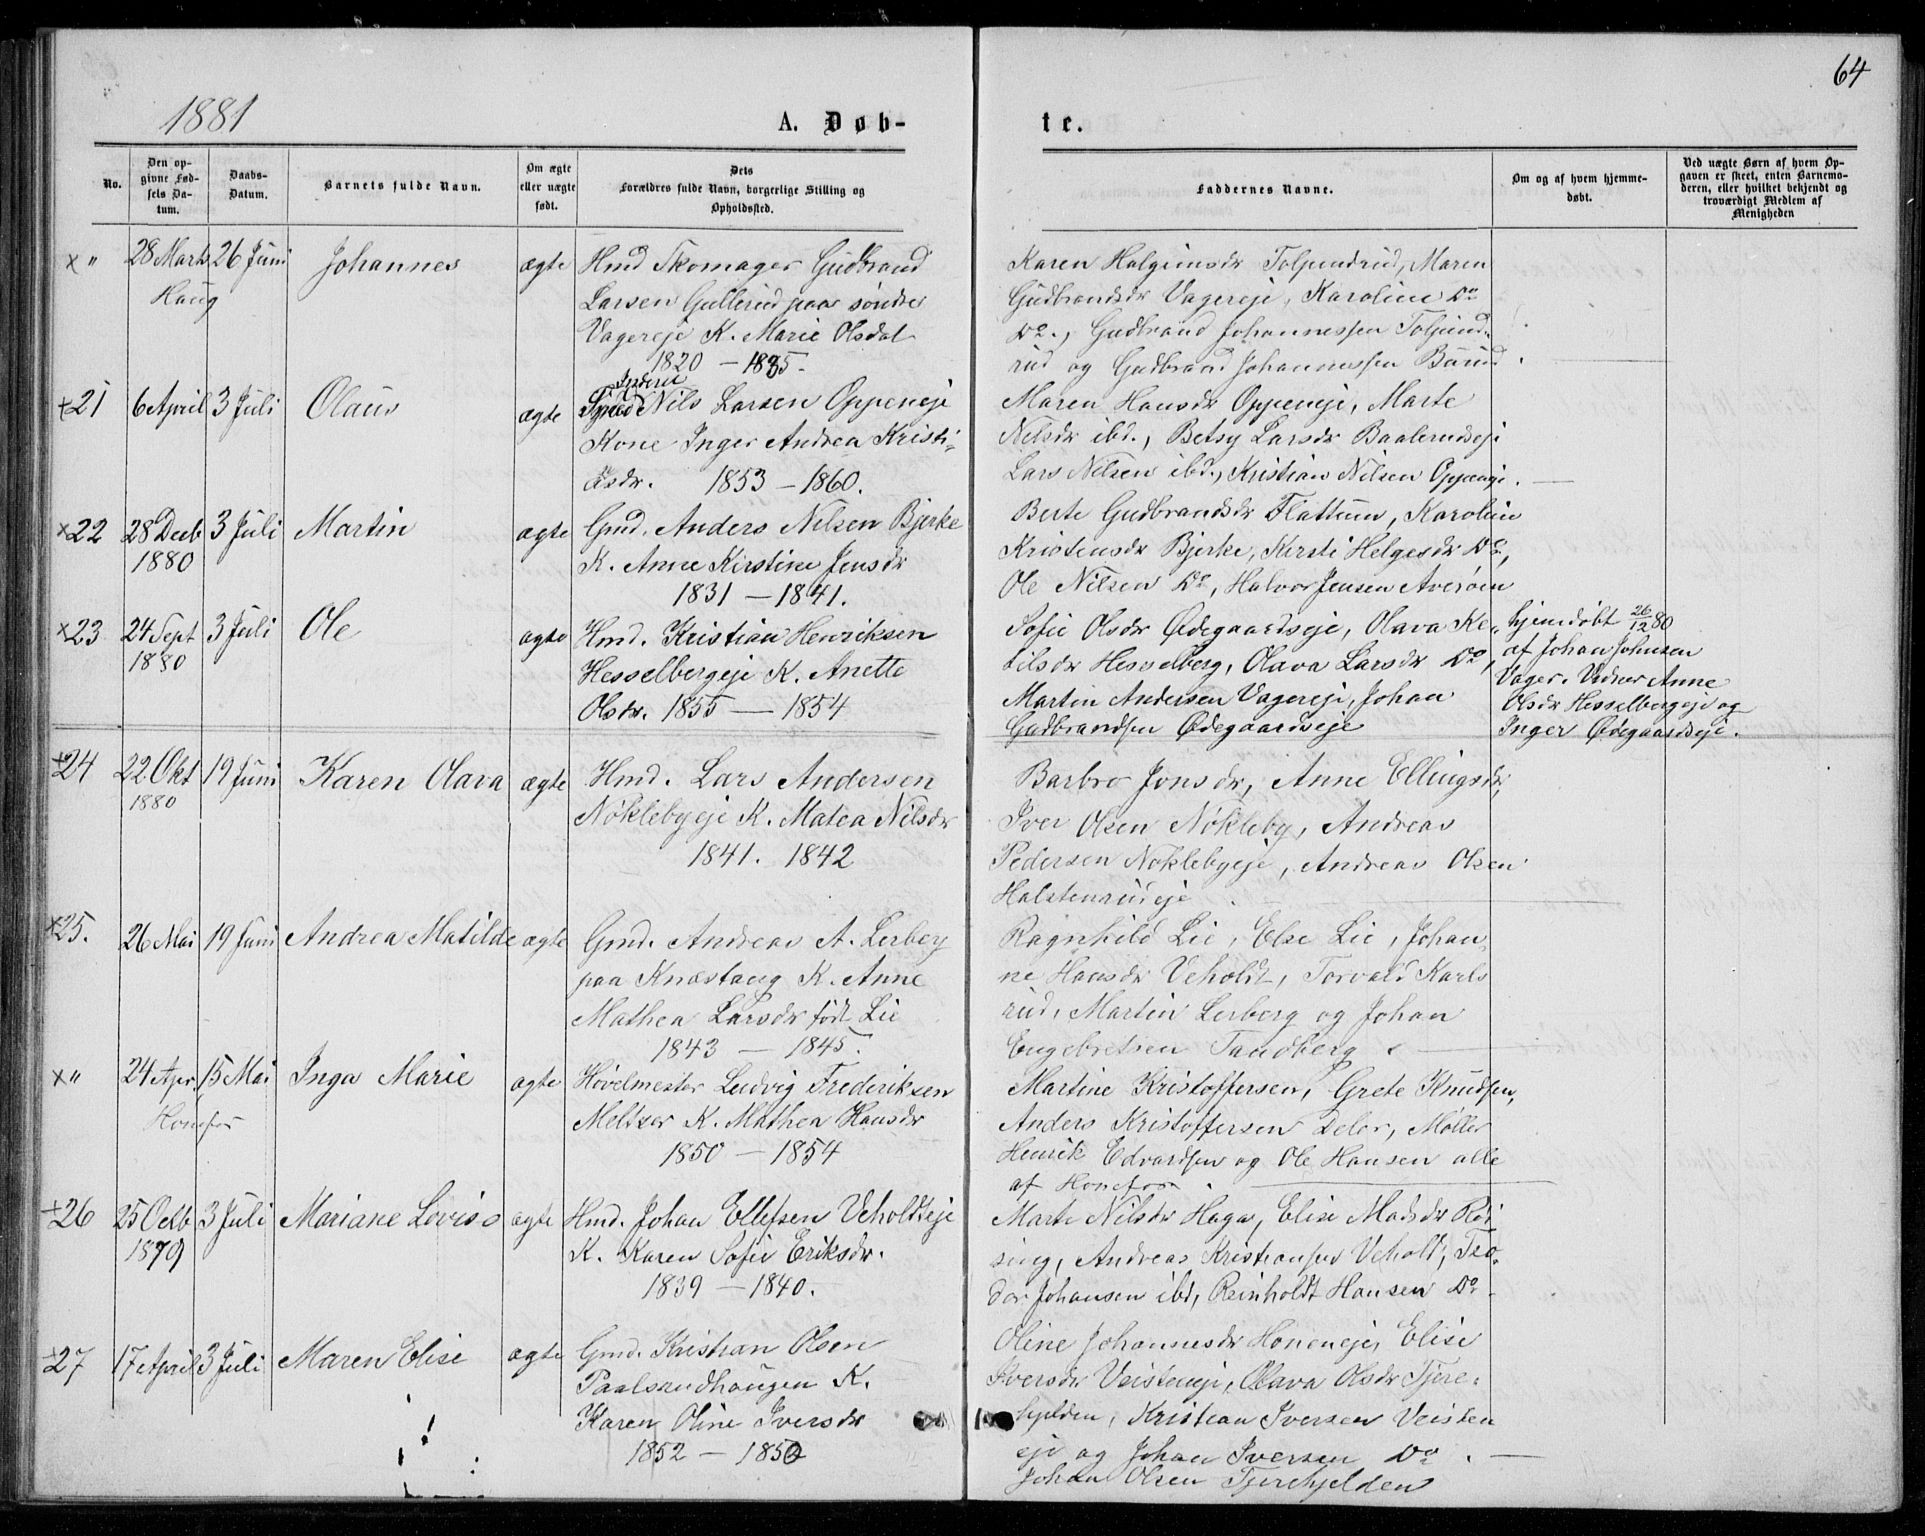 64
1881
A. Døb-
te.
No.
Den op-
givne Fød-
sels Da-
tum.
Daabs-
Datum.
Barnets fulde Navn.
Om ægte
eller uægte
født.
Dets
Forældres fulde Navn, borgerlige Stilling og
Opholdssted.
Faddernes Navne.
Om og af hvem hjemme-
døbt.
Ved uægte Børn af hvem Op-
gaven er skeet, enten Barnemo-
deren, eller hvilket bekjendt og
troværdigt Medlem af
Menigheden
x " 28 Marts 26 Juni Johannes ægte Hmd Skomager Gudbrand
Haug Larsen Gullerud paa søndre
Vagereje K. Marie Olsdat
1820 – 1835.
Karen Halgrimsdr Tolpundrud, Maren
Gudbrandsdr Vagereje, Karoline Do
Do., Gudbrand Johannessen Tolpund-
rud og Gudbrand Johannessen Burud.
x21 6 April 3 Juli Olaus ægte Inderst
Smed Nils Larsen Oppeneje
Kone Inger Andrea Kristi-
asdr. 1853 – 1860.
Maren Hansdr Oppeneje, Marte
Nilsdr ibd., Betsy Larsdr Baalerudseje
Lars Nilsen ibd., Kristian Nilsen Oppeneje.
x22 28 Decb 3 Juli Martin ægte Gmd. Anders Nilsen Bjerke
1880 K. Anne Kirstine Jensdr
1831 – 1841.
Berte Gudbrandsdr Flattum, Karoline
Kristensdr Bjerke, Kersti Helgesdr Do,
Ole Nilsen Do, Halvor Jensen Averøen
x23 24 Sept 3 Juli Ole ægte Hmd. Kristian Henriksen
1880 Hesselbergeje K. Anette
Olsdr. 1855 – 1854
Sofie Olsdr Ødegaardseje, Olava Ke-
tilsdr Hesselberg, Olava Larsdr Do,
Martin Andersen Vagereje, Johan
Gudbrandsen Ødegaardseje
hjemdøbt 26/12 80
af Johan Johnsen
Vager. Vidner Anne
Olsdr Hesselbergeje og
Inger Ødegaardseje.
x24 22 Okt 19 Juni Karen Olava ægte Hmd. Lars Andersen
1880 Nøklebyeje K. Matea Nilsdr
1841. 1842
Barbro Jonsdr, Anne Ellingsdr,
Iver Olsen Nøkleby, Andreas
Pedersen Nøklebyeje, Andreas Olsen
Halstenrudeje.
x25. 26 Mai 19 Juni Andrea Matilde ægte Gmd. Andreas A. Lerberg
paa Knæstang K. Anne
Mathea Larsdr født Lie
1843 – 1845.
Ragnhild Lie, Else Lie, Johan-
ne Hansdr Veholdt, Torvald Karls
rud, Martin Lerberg og Johan
Engebretsen Tandberg.
x " 24 Apr. 15 Mai Inga Marie ægte Høvelmester Ludvig Frederiksen
Honefos Meltzer K. Mathea Hansdr
1850 – 1854
Martine Kristoffersen, Grete Knudsen,
Anders Kristoffersen Deler, Møller
Henrik Edvardsen og Ole Hansen alle
af Honefos.
x26 25 Octb 3 Juli Mariane Lovise ægte Hmd. Johan Ellefsen Veholdteje
1879 K. Karen Sofie Eriksdr.
1839 – 1840.
Marte Nilsdr Haga, Elise Madsdr Røi
sing, Andreas Kristiansen Veholdt, Teo-
dor Johansen ibd, Reinholdt Hansen Do.
x27 17 April 3 Juli Maren Elise ægte Gmd. Kristian Olsen
Paalsrudhaugen K.
Karen Oline Iversdr
1852 – 1850
Oline Johannesdr Honeneje, Elise
Iversdr Veisteneje, Olava Olsdr Tjere-
hjelden, Kristian Iversen Veisten
eje og Johan Iversen Do.
Johan Olsen Tjerehjelden